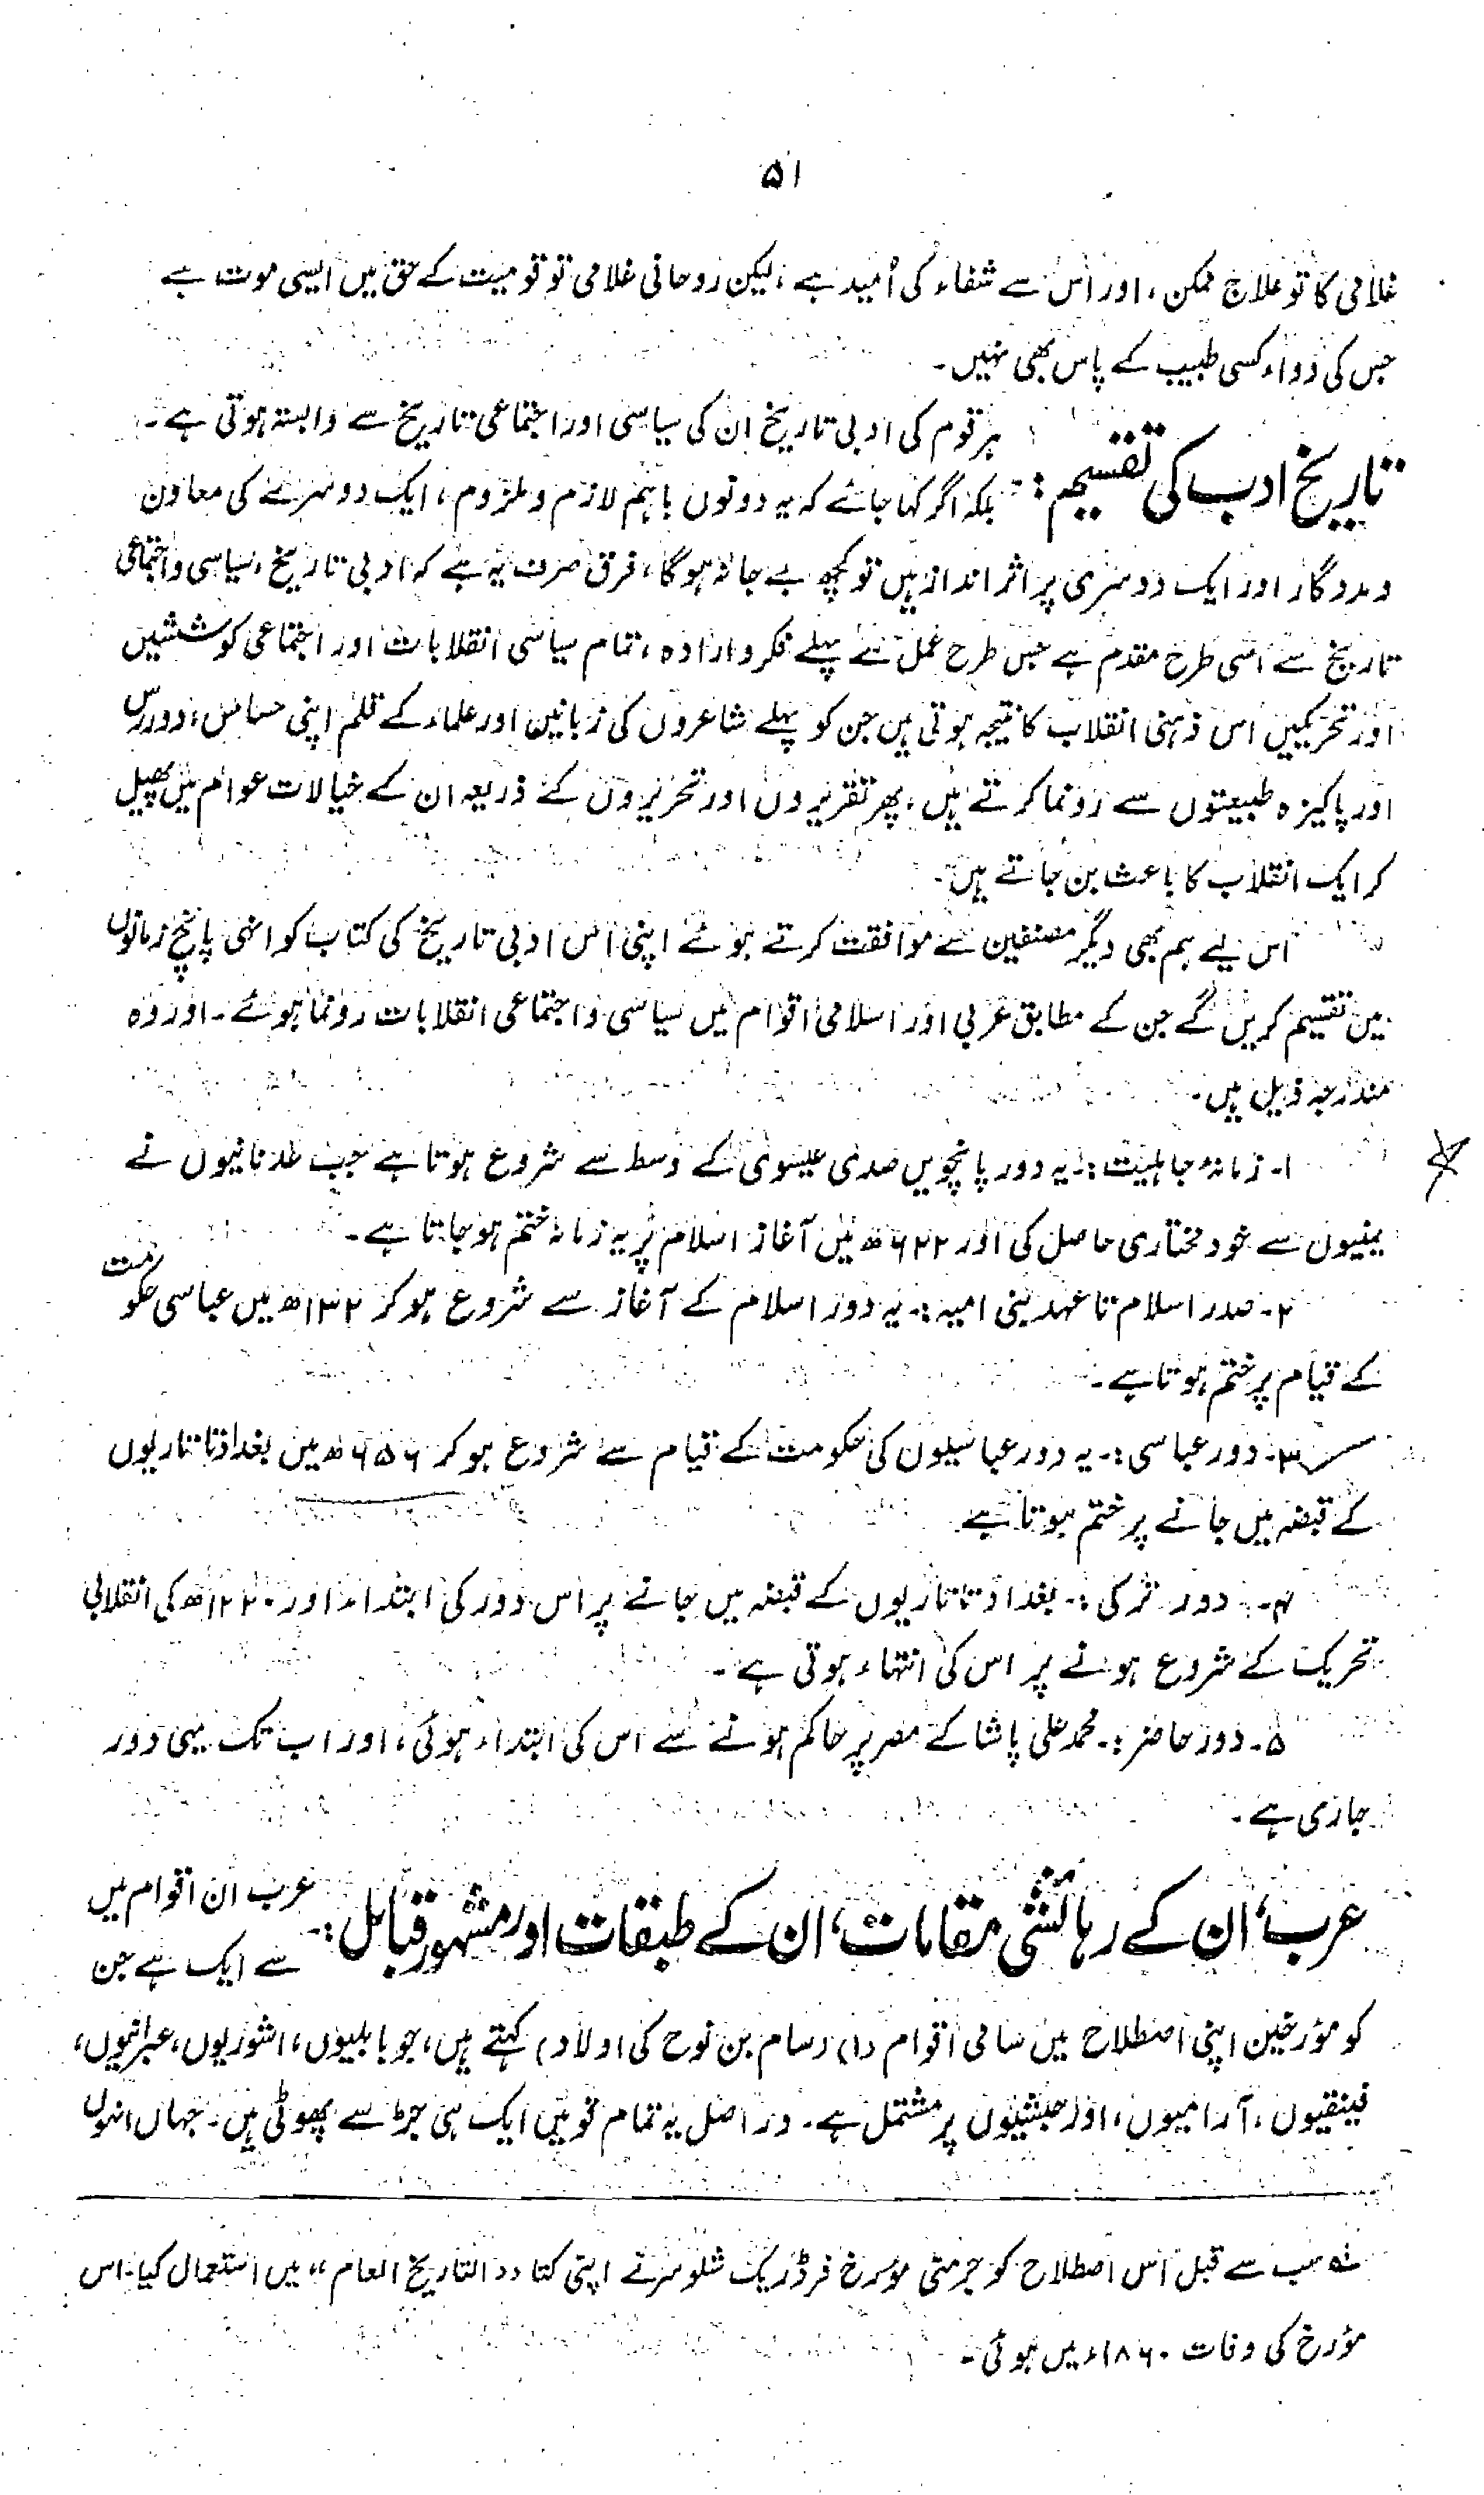 ۵۱
غلامی کا تو علاج ممکن، اور اس سے شفاء کی اُمید ہے، لیکن روحانی غلامی تو قومیت کے حق میں ایسی موت ہے
جس کی دواء کسی طبیب کے پاس بھی نہیں۔
تاریخ ادب کی تقسیم :- ہر قوم کی ادبی تاریخ ان کی سیاسی اور اجتماعی تاریخ سے وابستہ ہوتی ہے۔
بلکہ اگر کہا جائے کہ یہ دونوں باہم لازم و ملزوم، ایک دوسرے کی معاون
و مددگار اور ایک دوسری پر اثر انداز ہیں تو کچھ بے جا نہ ہوگا، فرق صرف یہ ہے کہ ادبی تاریخ، سیاسی و اجتماعی
تاریخ سے اسی طرح مقدم ہے جس طرح عمل سے پہلے فکر و ارادہ، تمام سیاسی انقلابات اور اجتماعی کوششیں
اور تحریکیں اس ذہنی انقلاب کا نتیجہ ہوتی ہیں جن کو پہلے شاعروں کی زبانیں اور علماء کے قلم اپنی حساس، دوررس
اور پاکیزہ طبیعتوں سے رونما کرتے ہیں، پھر تقریروں اور تحریروں کے ذریعہ ان کے خیالات عوام میں پھیل
کر ایک انقلاب کا باعث بن جاتے ہیں۔
اس لیے ہم بھی دیگر مصنفین سے موافقت کرتے ہوئے اپنی اس ادبی تاریخ کی کتاب کو انہی پانچ زمانوں
میں تقسیم کریں گے جن کے مطابق عربی اور اسلامی اقوام میں سیاسی و اجتماعی انقلابات رونما ہوئے۔ اور وہ
مندرجہ ذیل ہیں۔
۱۔ زمانہ جاہلیت :۔ یہ دور پانچویں صدی عیسوی کے وسط سے شروع ہوتا ہے جب عدنانیوں نے
یمنیوں سے خود مختاری حاصل کی اور ۶۲۲ھ میں آغاز اسلام پر یہ زمانہ ختم ہو جاتا ہے۔
۲۔ صدر اسلام تا عہد بنی امیہ :۔ یہ دور اسلام کے آغاز سے شروع ہو کر ۱۳۲ھ میں عباسی حکومت
کے قیام پر ختم ہوتا ہے۔
۳۔ دور عباسی :۔ یہ دور عباسیوں کی حکومت کے قیام سے شروع ہو کر ۶۵۶ھ میں بغداد تاتاریوں
کے قبضہ میں جانے پر ختم ہوتا ہے
۴۔ دور ترکی :۔ بغداد تاتاریوں کے قبضہ میں جانے پر اس دور کی ابتداء اور ۱۲۲۰ھ کی انقلابی
تحریک کے شروع ہونے پر اس کی انتہاء ہوتی ہے۔
۵۔ دور حاضر :۔ محمد علی پاشا کے مصر پر حاکم ہونے سے اس کی ابتداء ہوئی، اور اب تک یہی دور
جاری ہے۔
عرب، ان کے رہائشی مقامات، ان کے طبقات اور مشہور قبائل :۔ عرب ان اقوام میں
سے ایک ہے جن
کو مؤرخین اپنی اصطلاح میں سامی اقوام (۱) (سام بن نوح کی اولاد) کہتے ہیں، جو بابلیوں، اشوریوں، عبرانیوں،
فینقیوں، آرامیوں، اور حبشیوں پر مشتمل ہے۔ در اصل یہ تمام قومیں ایک ہی جڑ سے پھوٹی ہیں۔ جہاں انہوں
سب سے قبل اس اصطلاح کو جرمنی مؤرخ فرڈریک شلوسرنے اپنی کتا دد التاریخ العام ،، میں استعمال کیا۔ اس
مؤرخ کی وفات ۱۸۶۰ء میں ہوئی۔